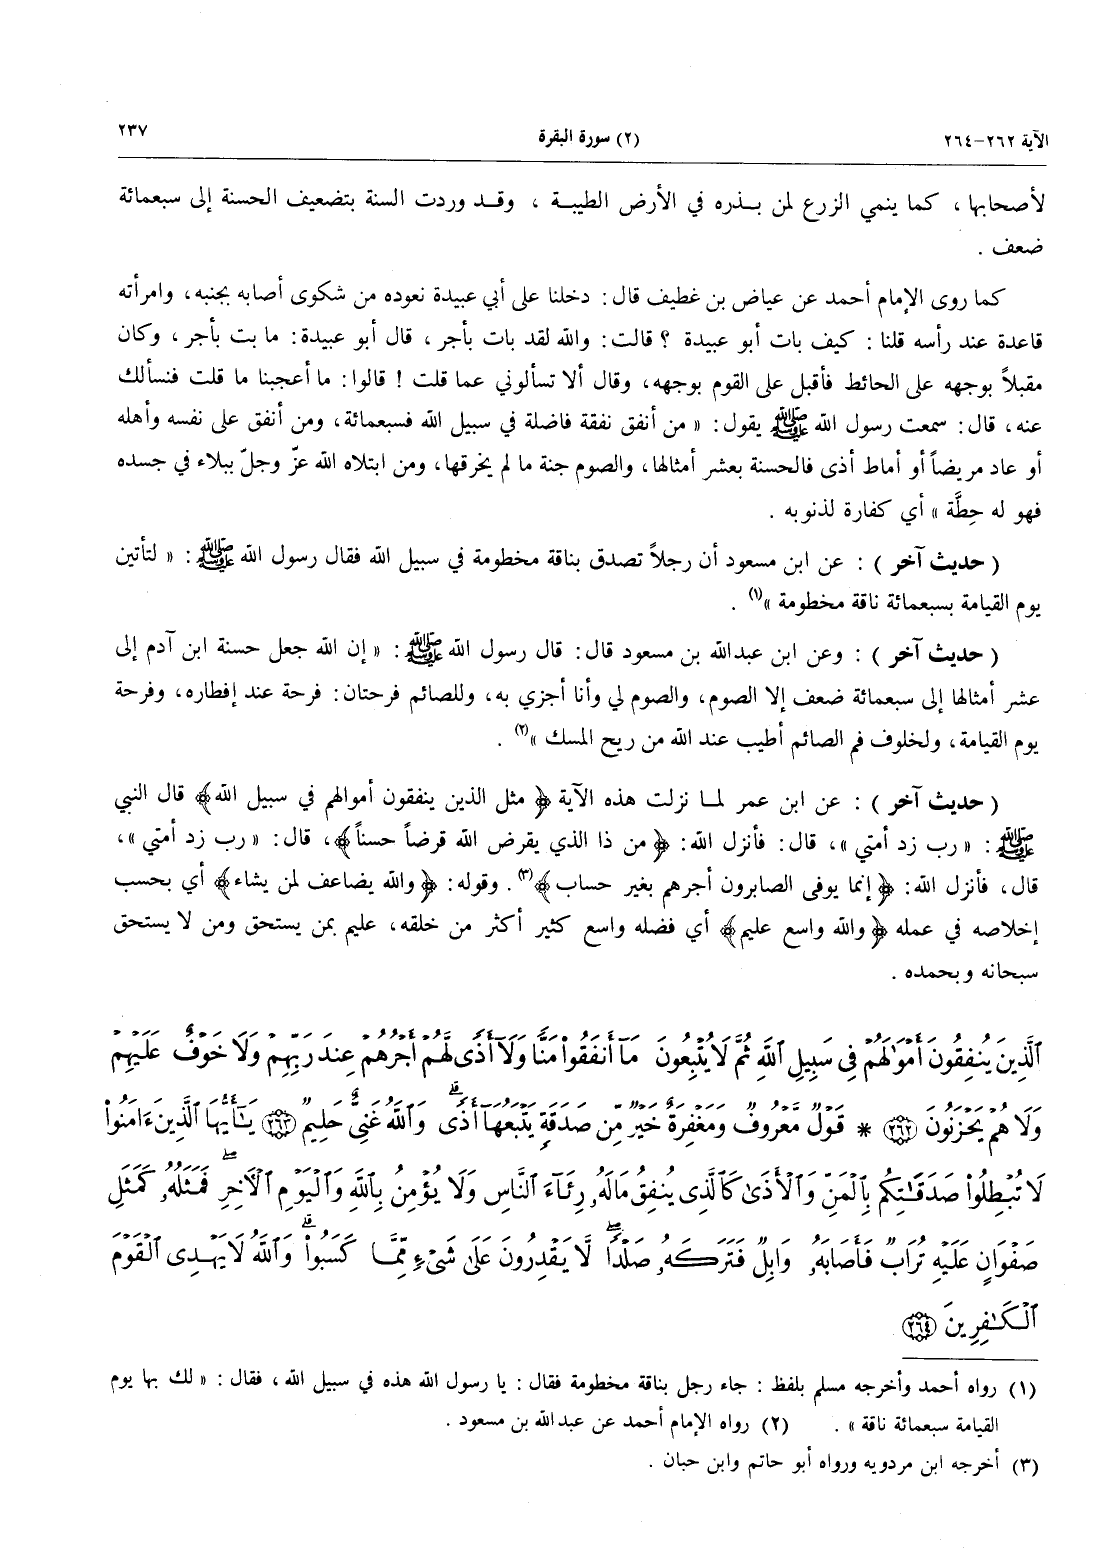 الآية ٢٦٢-٢٦٤ (٢) سورة البقرة ٢٣٧
لأصحابها ، كما ينمي الزرع لمن بــذره في الأرض الطيبـة ، وقـد وردت السنة بتضعيف الحسنة إلى سبعمائة
ضعف .
كما روى الإمام أحمد عن عياض بن غطيف قال: دخلنا على أبي عبيدة نعوده من شكوى أصابه بجنبه، وامرأته
قاعدة عند رأسه قلنا : كيف بات أبو عبيدة ؟ قالت: والله لقد بات بأجر ، قال أبو عبيدة: ما بت بأجر ، وكان
مقبلاً بوجهه على الحائط فأقبل على القوم بوجهه، وقال ألا تسألوني عما قلت ! قالوا: ما أعجبنا ما قلت فنسألك
عنه، قال: سمعت رسول الله ﷺ يقول: « من أنفق نفقة فاضلة في سبيل الله فسبعمائة، ومن أنفق على نفسه وأهله
أو عاد مريضاً أو أماط أذى فالحسنة بعشر أمثالها، والصوم جنة ما لم يخرقها، ومن ابتلاه الله عزّ وجلّ ببلاء في جسده
فهو له حِطَّة » أي كفارة لذنوبه .
( حديث آخر ) : عن ابن مسعود أن رجلاً تصدق بناقة مخطومة في سبيل الله فقال رسول الله ﷺ : « لتأتين
يوم القيامة بسبعمائة ناقة مخطومة »(١) .
( حديث آخر ) : وعن ابن عبدالله بن مسعود قال: قال رسول الله ﷺ : « إن الله جعل حسنة ابن آدم إلى
عشر أمثالها إلى سبعمائة ضعف إلا الصوم، والصوم لي وأنا أجزي به، وللصائم فرحتان: فرحة عند إفطاره، وفرحة
يوم القيامة، ولخلوف فم الصائم أطيب عند الله من ريح المسك »(٢) .
( حديث آخر ) : عن ابن عمر لمـا نزلت هذه الآية ﴿ مثل الذين ينفقون أموالهم في سبيل الله﴾ قال النبي
ﷺ : « رب زد أمتي »، قال: فأنزل الله: ﴿ من ذا الذي يقرض الله قرضاً حسناً﴾، قال: « رب زد أمتي »،
قال، فأنزل الله: ﴿ إنما يوفى الصابرون أجرهم بغير حساب﴾(٣). وقوله: ﴿ والله يضاعف لمن يشاء﴾ أي بحسب
إخلاصه في عمله ﴿ والله واسع عليم﴾ أي فضله واسع كثير أكثر من خلقه، عليم بمن يستحق ومن لا يستحق
سبحانه وبحمده .
ٱلَّذِينَ يُنفِقُونَ أَمْوَٰلَهُمْ فِى سَبِيلِ ٱللَّهِ ثُمَّ لَا يُتْبِعُونَ مَآ أَنفَقُوا۟ مَنًّا وَلَآ أَذًى لَّهُمْ أَجْرُهُمْ عِندَ رَبِّهِمْ وَلَا خَوْفٌ عَلَيْهِمْ
وَلَا هُمْ يَحْزَنُونَ ٢٦٢ * قَوْلٌ مَّعْرُوفٌ وَمَغْفِرَةٌ خَيْرٌ مِّن صَدَقَةٍ يَتْبَعُهَآ أَذًى ۗ وَٱللَّهُ غَنِىٌّ حَلِيمٌ ٢٦٣ يَـٰٓأَيُّهَا ٱلَّذِينَ ءَامَنُوا۟
لَا تُبْطِلُوا۟ صَدَقَـٰتِكُم بِٱلْمَنِّ وَٱلْأَذَىٰ كَٱلَّذِى يُنفِقُ مَالَهُۥ رِئَآءَ ٱلنَّاسِ وَلَا يُؤْمِنُ بِٱللَّهِ وَٱلْيَوْمِ ٱلْـَٔاخِرِ ۖ فَمَثَلُهُۥ كَمَثَلِ
صَفْوَانٍ عَلَيْهِ تُرَابٌ فَأَصَابَهُۥ وَابِلٌ فَتَرَكَهُۥ صَلْدًا ۖ لَّا يَقْدِرُونَ عَلَىٰ شَىْءٍ مِّمَّا كَسَبُوا۟ ۗ وَٱللَّهُ لَا يَهْدِى ٱلْقَوْمَ
ٱلْكَـٰفِرِينَ ٢٦٤
(١) رواه أحمد وأخرجه مسلم بلفظ : جاء رجل بناقة مخطومة فقال : يا رسول الله هذه في سبيل الله ، فقال : « لك بها يوم
القيامة سبعمائة ناقة » . (٢) رواه الإمام أحمد عن عبدالله بن مسعود .
(٣) أخرجه ابن مردويه ورواه أبو حاتم وابن حبان .